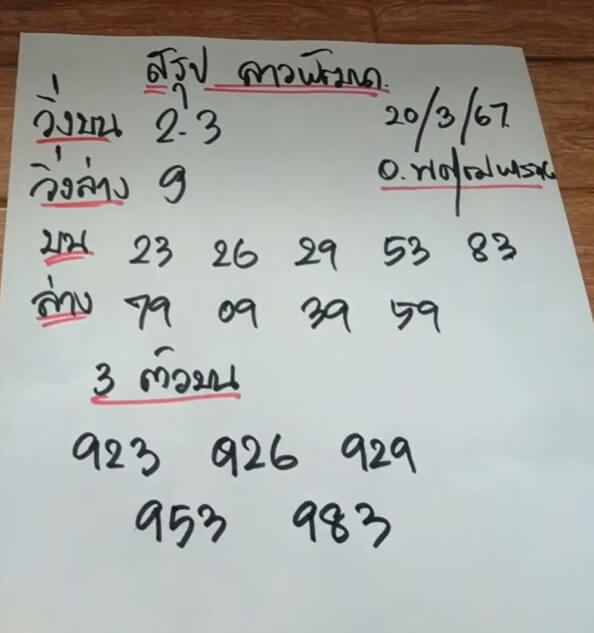 สรุป ลาวพัฒนา
วิ่งบน 2-3 20/3/67
วิ่งล่าง 9
บน 23 26 29 53 83
ล่าง 79 09 39 59
3 ตัวบน
923 926 929
953 983